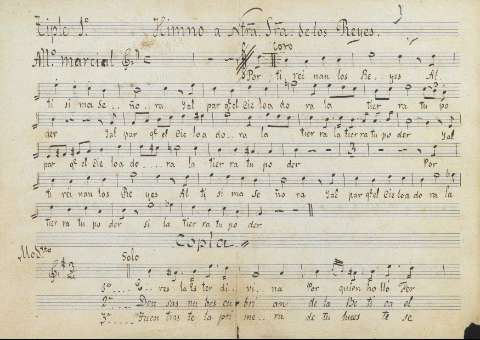 Tiple 1º Himno a Ntra. Sra. de los Reyes.
All.º marcial Coro
Por ti rei nan los Re.. yes Al
ti si ma Se.. ño.. ra Y al par qᵉ el Cie lo a do ra la tier ra tu po
der Y al par qᵉ el Cie lo a do.. ra la tier ra la tier ra tu po der Y al
par qᵉ el Cie lo a do... ra la tier ra tu po der Por
ti rei nan los Re yes Al ti si ma Se ño ra Y al par qᵉ el Cie lo a do ra la
tier ra tu po der si la tier ra tu po der
Copla
Mod.to Solo
1ª .... E.. res la Es ter di.. vi.. na Por quien ho lló Fer
2ª .... Den sas nu bes cu bri an de la Be ti ca el
3ª .... tras te la pri me.. ra de tu te se